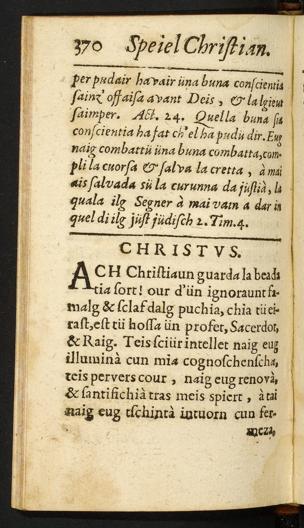 370 Speiel Christian.
per pudair ha vair üna buna conscientia
sainz' offaisa avant Deis, & la lgieut
saimper. Act. 24. Quella buna sia
conscientia ha fat ch'el ha pudü dir. Eug
naig combattü üna buna combatta, com-
pli la cuorsa & salva la cretta, à mai
ais salvada sü la curunna da justià, la
quala ilg Segner à mai vain a dar in
quel di ilg just jüdisch 2. Tim. 4.
CHRISTVS.
ACH Christiaun guarda la beada
tia sort! our d'ün ignoraunt fa-
malg & sclaf dalg puchia, chia tü ei-
rast, est tü hossa ün profet, Sacerdot,
& Raig. Teis sciür intellet naig eug
illuminà cun mia cognoschenscha,
teis pervers cour, naig eug renovà,
& santifichià tras meis spiert, à tai
naig eug tschintà intuorn cun fer-
meza,